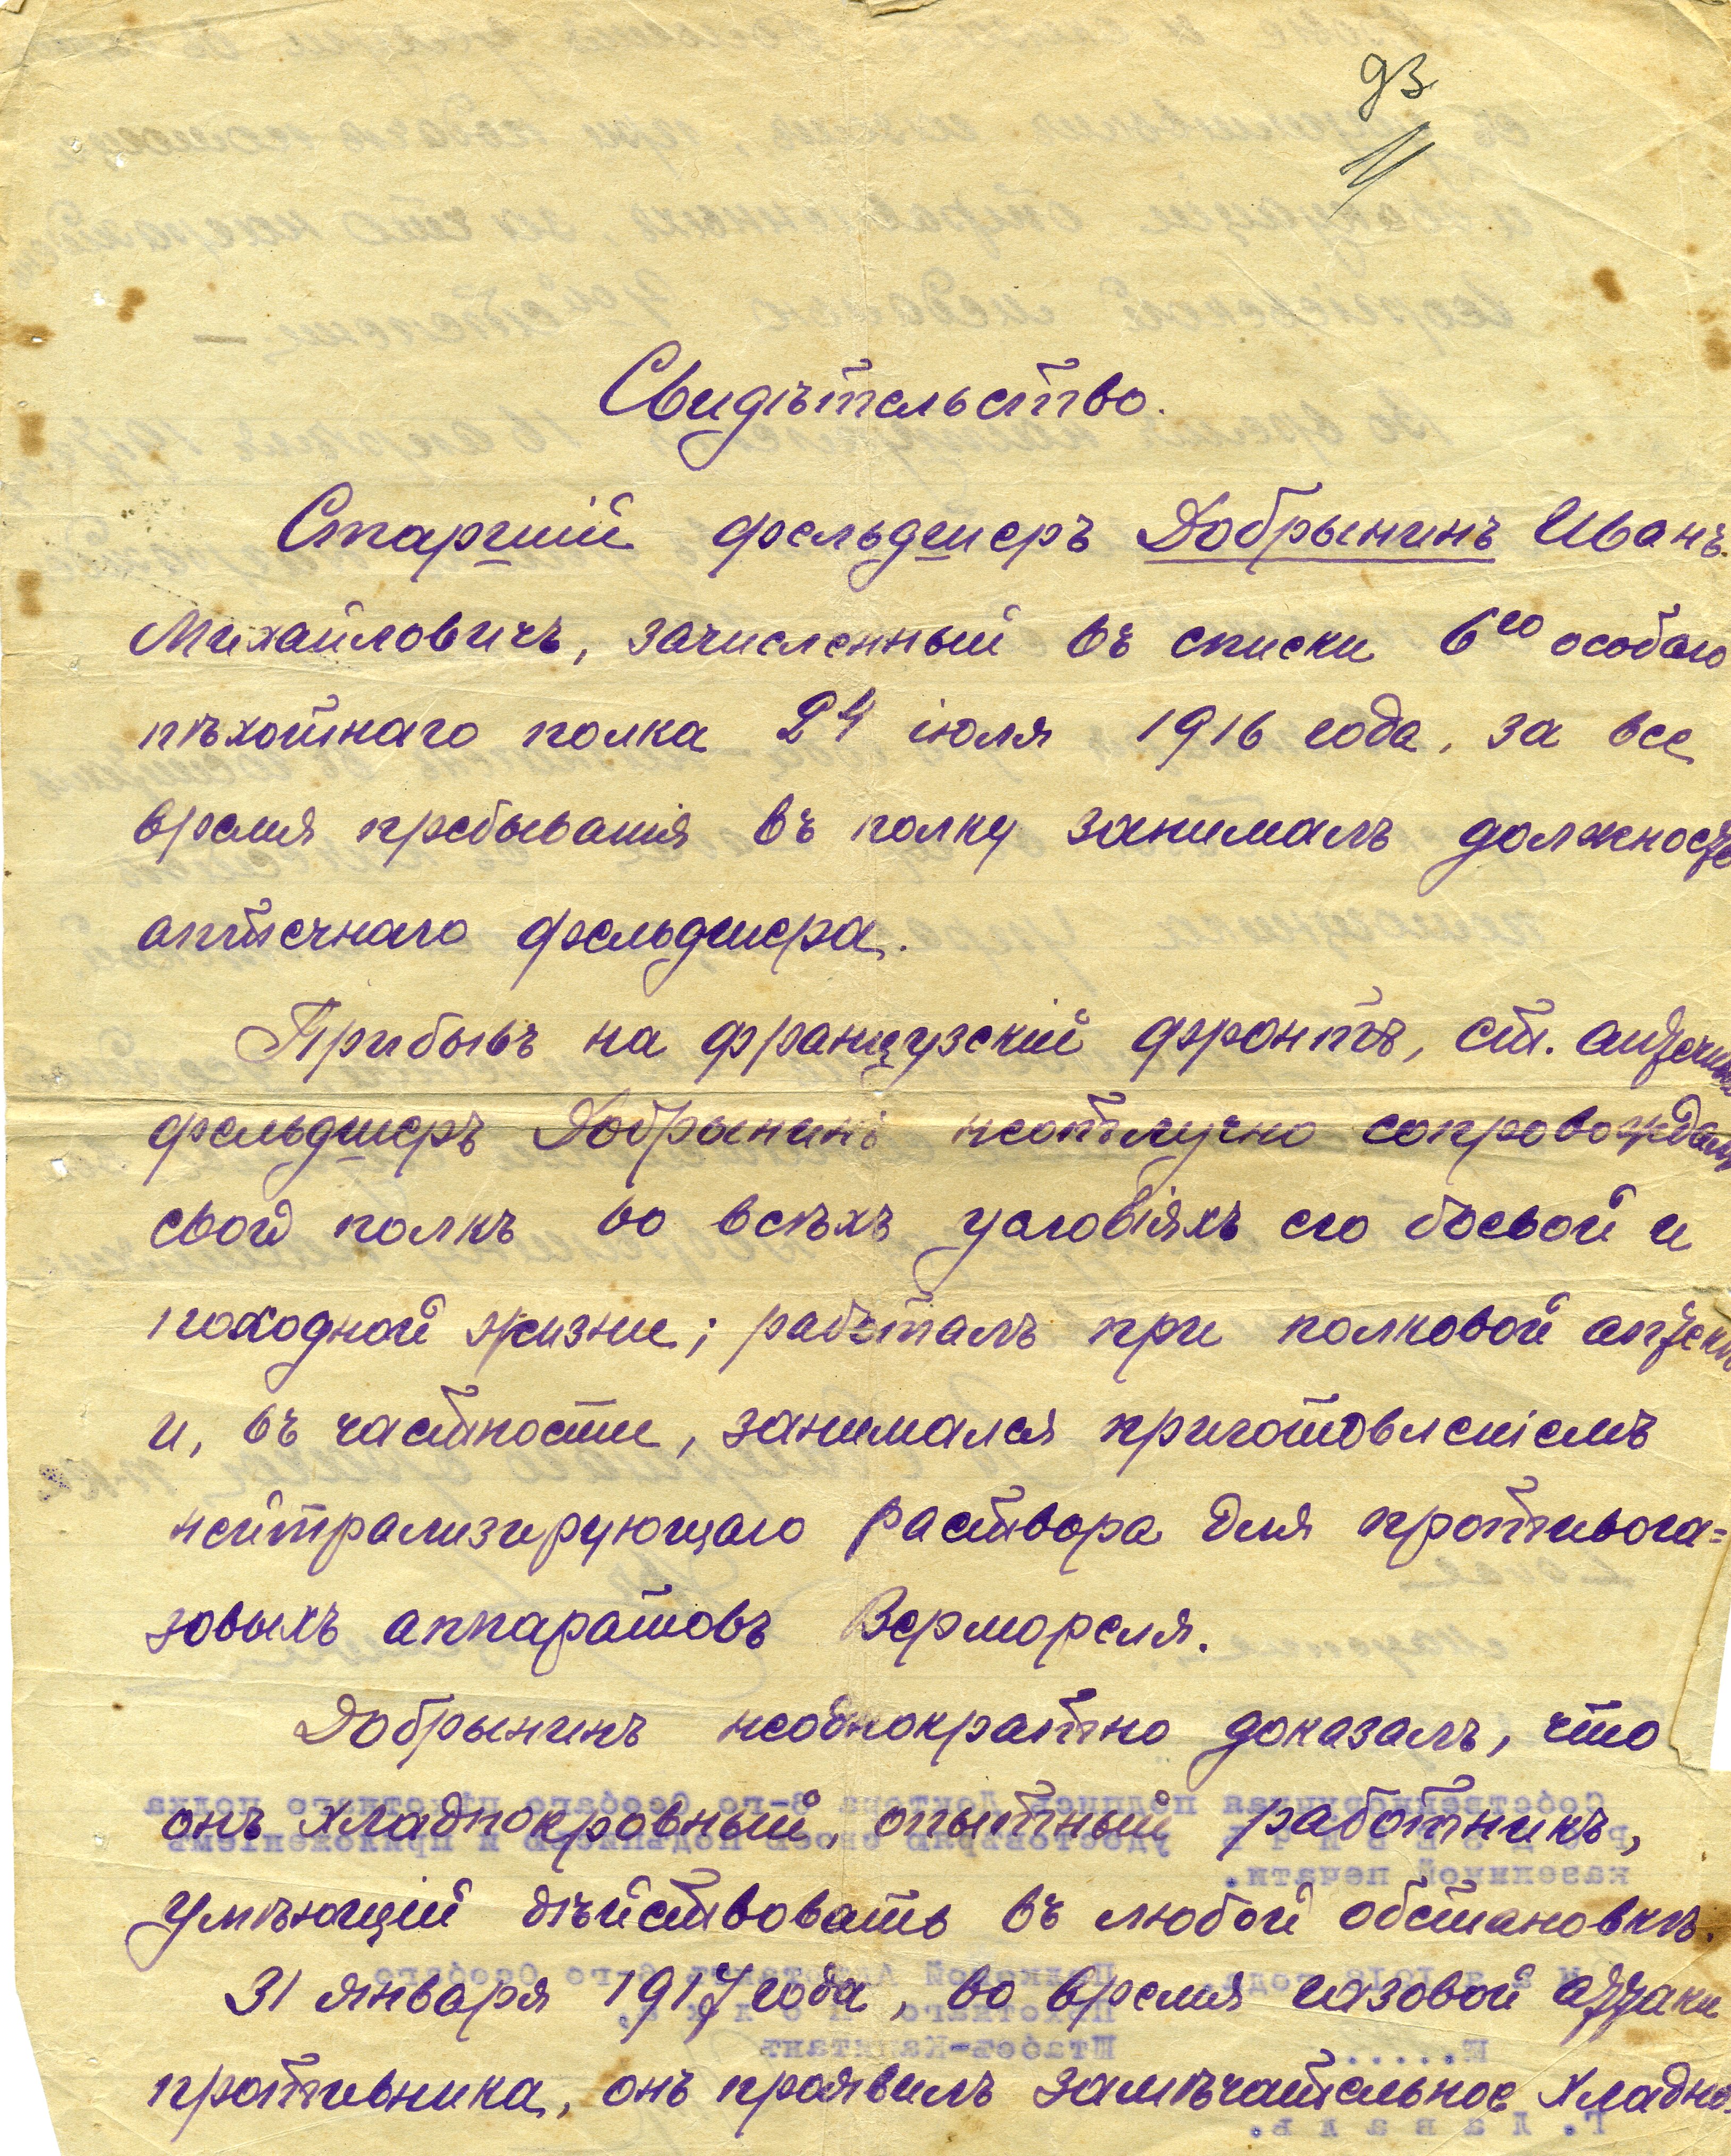 93
Свидѣтельство.
Старшій фельдшеръ Добрынинъ Иванъ
Михайловичъ, зачисленный въ списки 6го особаго
пѣхотнаго полка 24 іюля 1916 года, за все
время пребыванія въ полку занималъ должность
аптечнаго фельдшера.
Прибывъ на французскій фронтъ, ст. аптечный
фельдшеръ Добрынинъ неотлучно сопровождалъ
свой полкъ во всѣхъ условіяхъ его боевой и
походной жизни; работалъ при полковой аптекѣ
и, въ частности, занимался приготовленіемъ
нейтрализирующаго раствора для противога=
зовыхъ аппаратовъ Вермореля.
Добрынинъ неоднократно доказалъ, что
онъ хладнокровный, опытный работникъ,
умѣющій дѣйствовать въ любой обстановкѣ.
31 января 1917 года, во время газовой аттаки
противника, онъ проявилъ замѣчательное хладно-